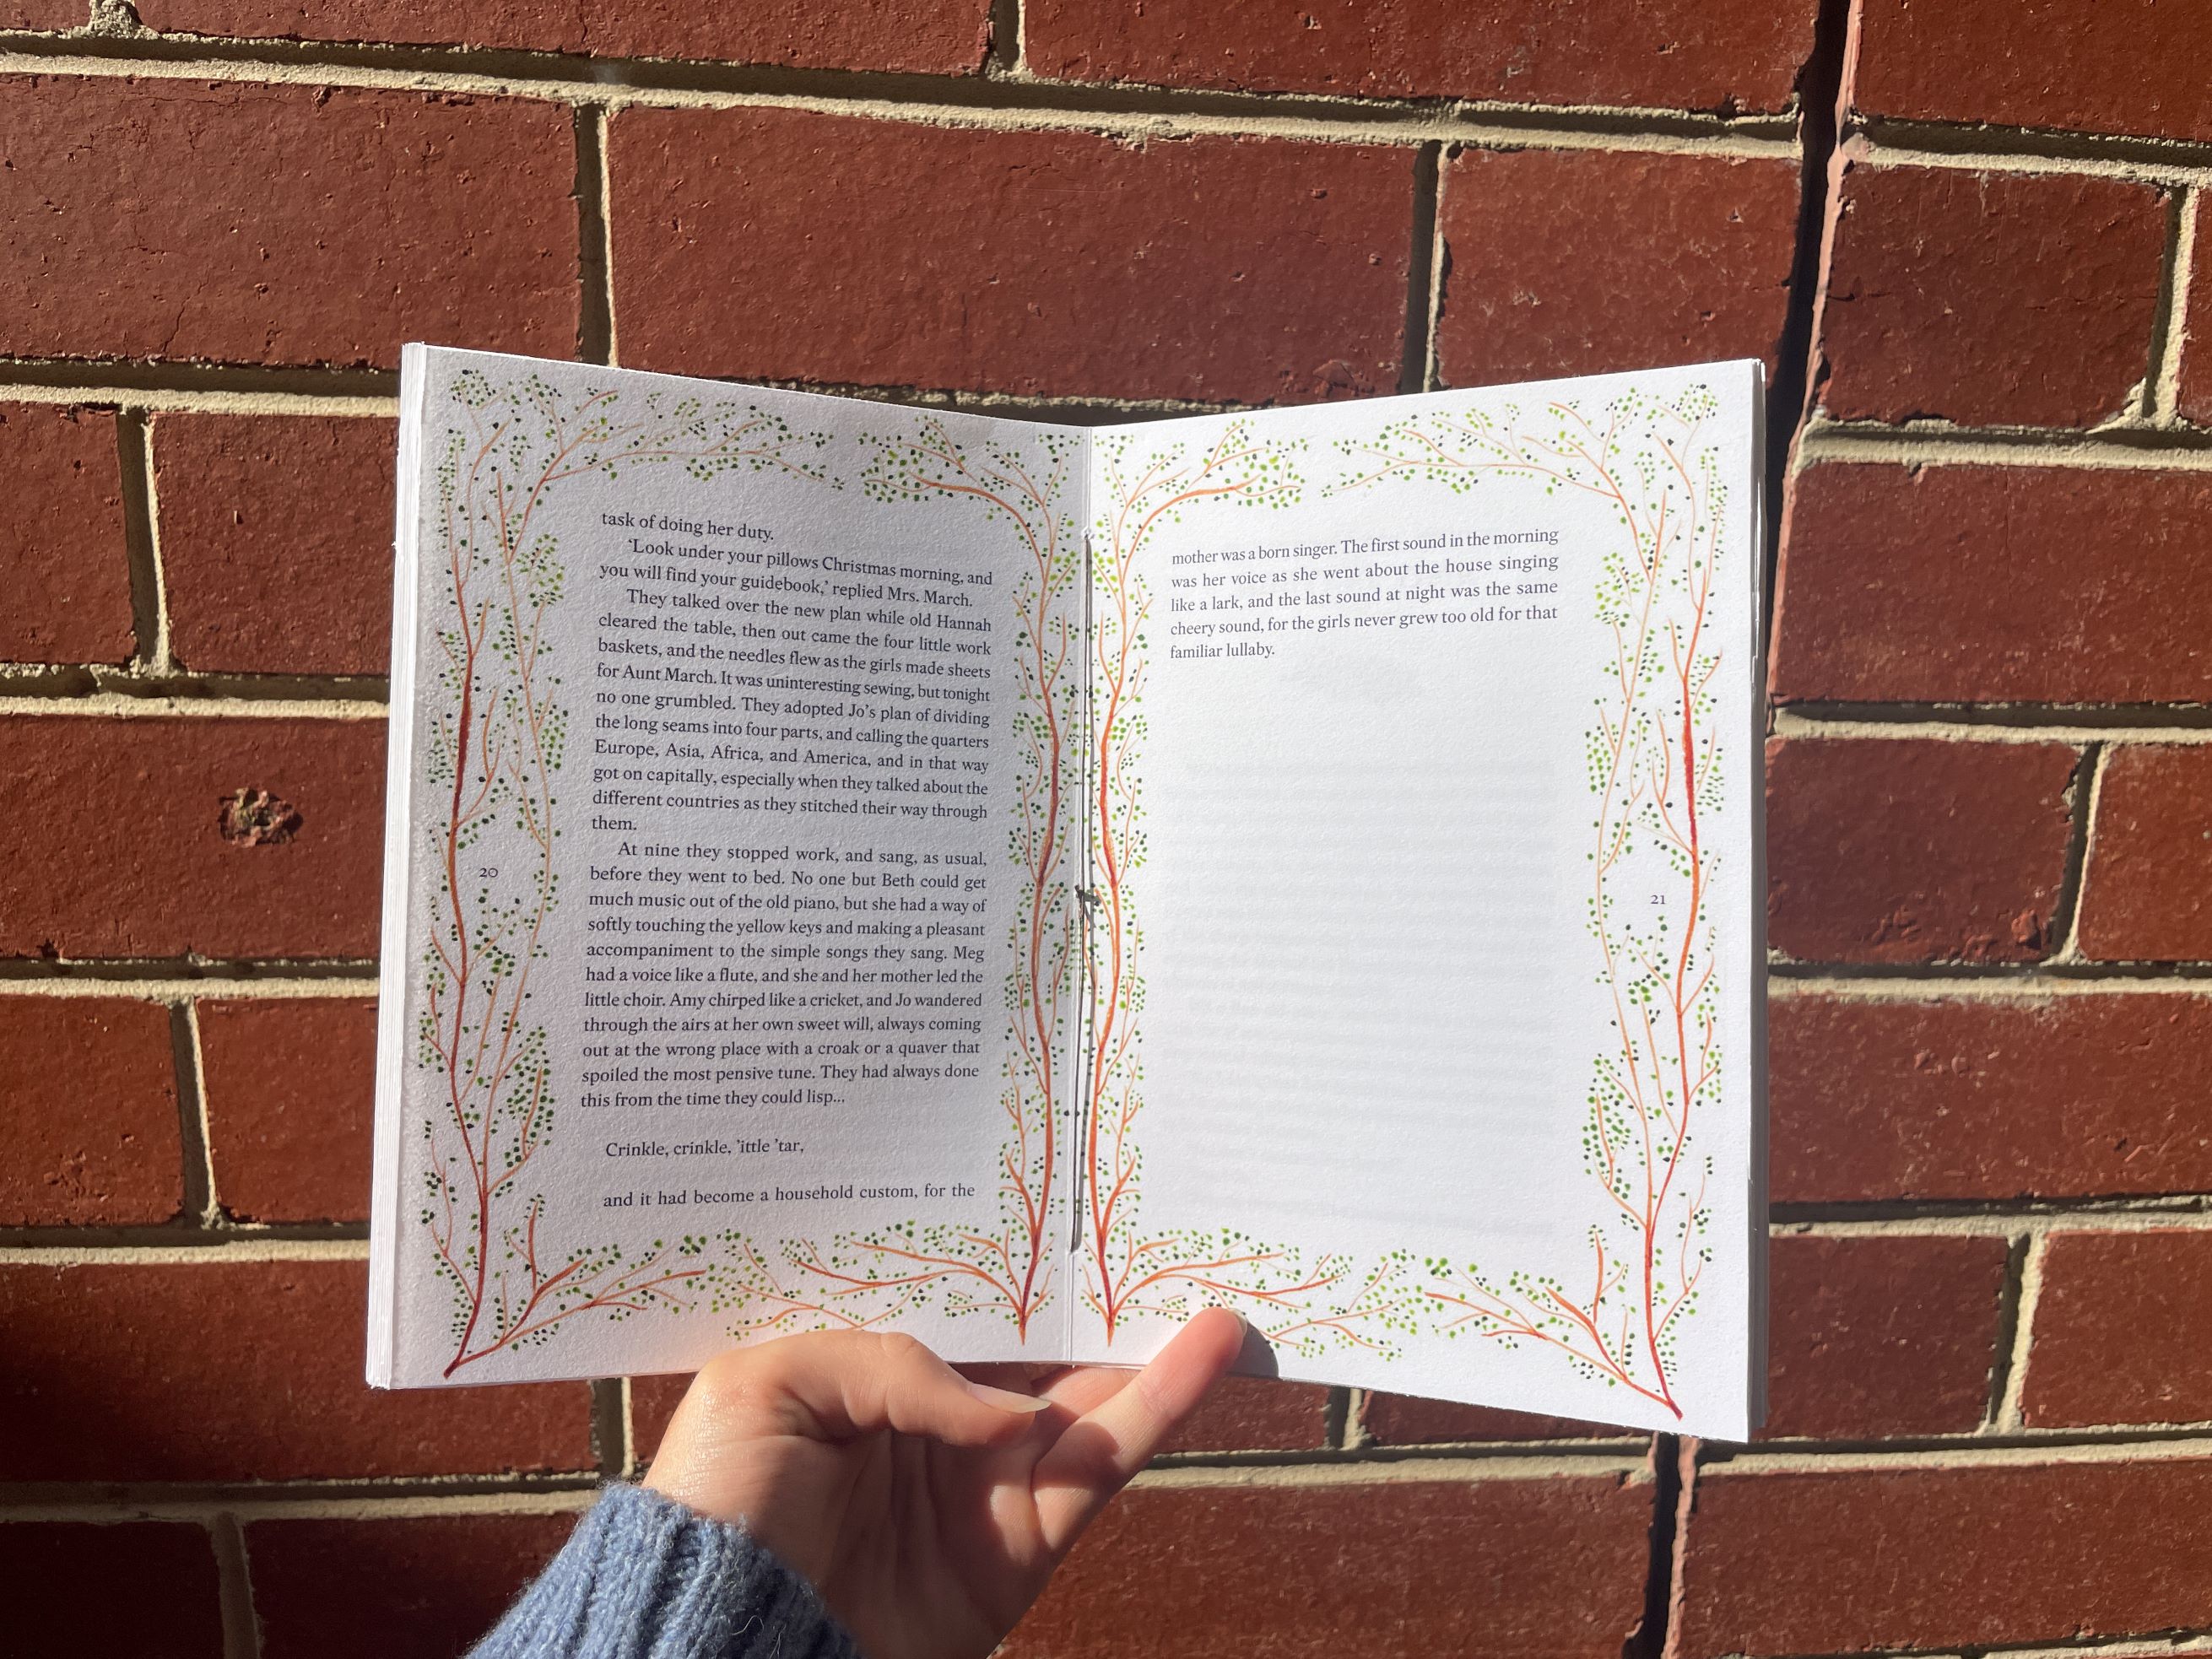 task of doing her duty.
‘Look under your pillows Christmas morning, and
you will find your guidebook,’ replied Mrs. March.
They talked over the new plan while old Hannah
cleared the table, then out came the four little work
baskets, and the needles flew as the girls made sheets
for Aunt March. It was uninteresting sewing, but tonight
no one grumbled. They adopted Jo’s plan of dividing
the long seams into four parts, and calling the quarters
Europe, Asia, Africa, and America, and in that way
got on capitally, especially when they talked about the
different countries as they stitched their way through
them.
At nine they stopped work, and sang, as usual,
before they went to bed. No one but Beth could get
much music out of the old piano, but she had a way of
softly touching the yellow keys and making a pleasant
accompaniment to the simple songs they sang. Meg
had a voice like a flute, and she and her mother led the
little choir. Amy chirped like a cricket, and Jo wandered
through the airs at her own sweet will, always coming
out at the wrong place with a croak or a quaver that
spoiled the most pensive tune. They had always done
this from the time they could lisp...
Crinkle, crinkle, ’ittle ’tar,
and it had become a household custom, for the
20
mother was a born singer. The first sound in the morning
was her voice as she went about the house singing
like a lark, and the last sound at night was the same
cheery sound, for the girls never grew too old for that
familiar lullaby.
21